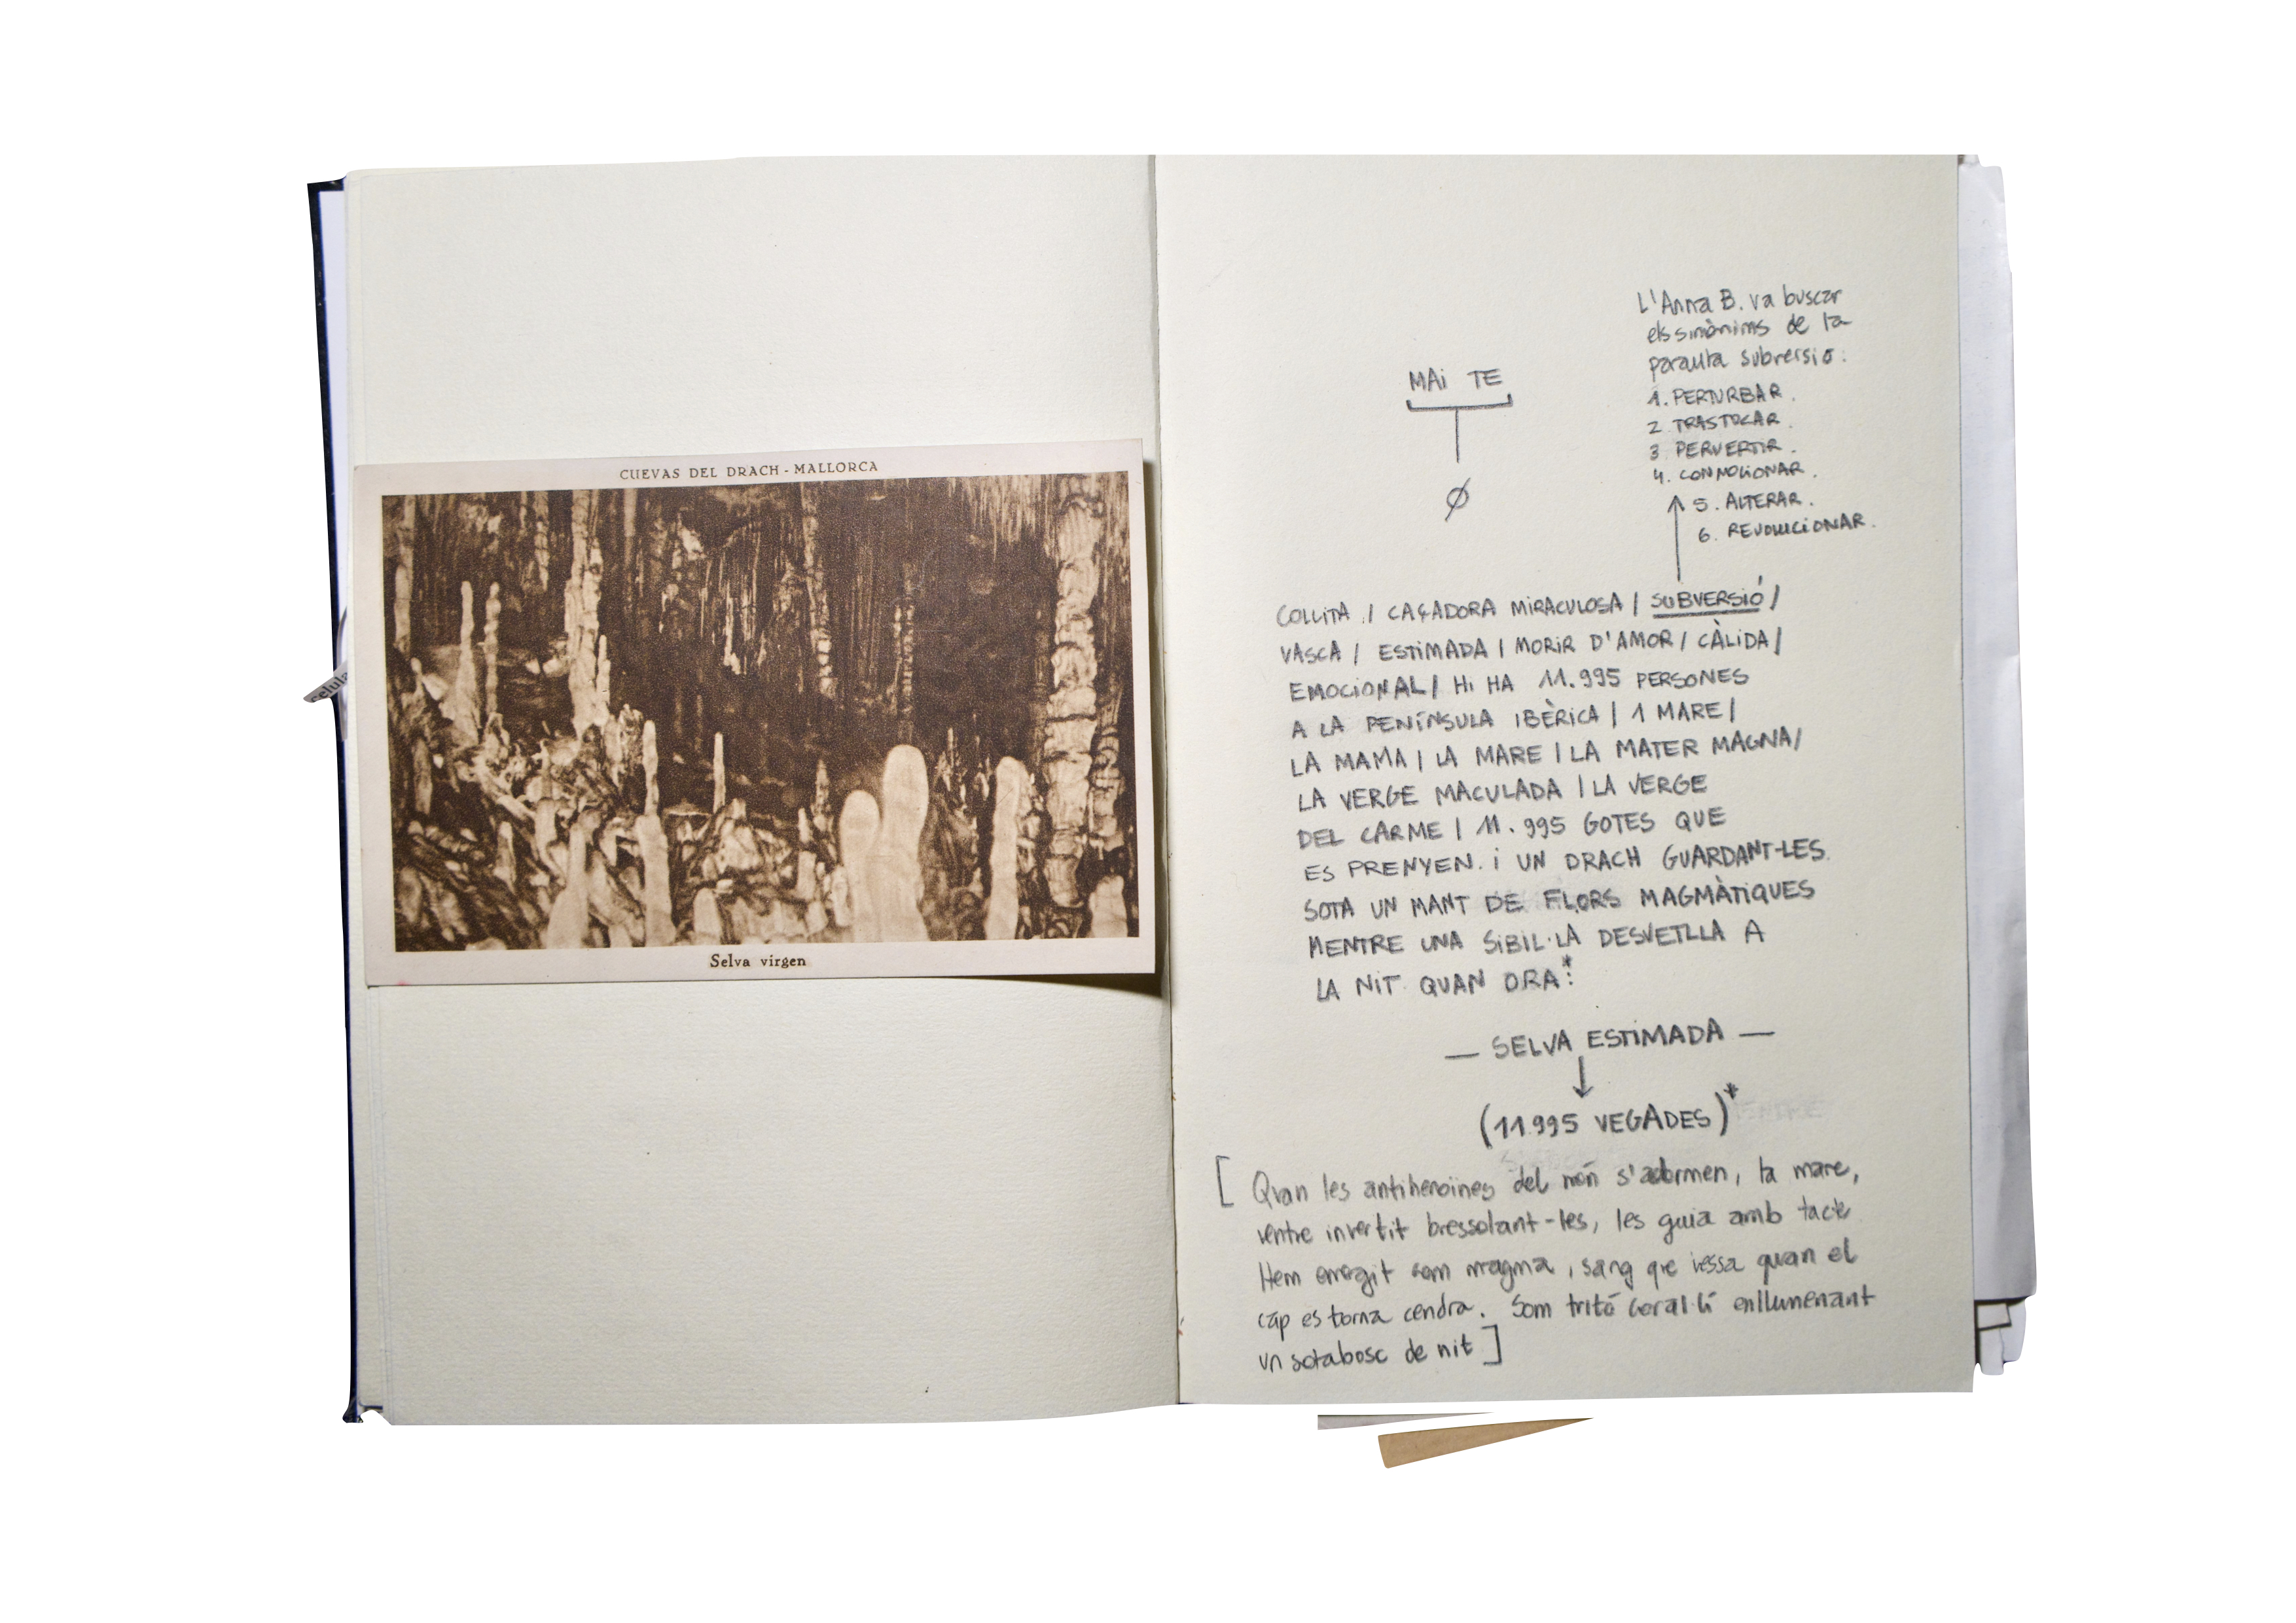 CUEVAS DEL DRACH - MALLORCA
Selva virgen
selula
L'Anna B. va buscar
els sinònims de la
paraula subversió:
1. PERTURBAR.
2. TRASTOCAR.
3. PERVERTIR.
4. CONMOCIONAR.
5. ALTERAR.
6. REVOLUCIONAR.
MAi TE
Ø
COLLITA / CAÇADORA MIRACULOSA / SUBVERSIÓ /
VASCA / ESTIMADA / MORIR D'AMOR / CÀLIDA /
EMOCIONAL / Hi HA 11.995 PERSONES
A LA PENÍNSULA IBÈRICA / 1 MARE /
LA MAMA / LA MARE / LA MATER MAGNA /
LA VERGE MACULADA / LA VERGE
DEL CARME / 11.995 GOTES QUE
ES PRENYEN. i UN DRACH GUARDANT-LES
SOTA UN MANT DE FLORS MAGMÀTIQUES
MENTRE UNA SIBIL·LA DESVETLLA A
LA NIT QUAN ORA*:
— SELVA ESTIMADA —
(11.995 VEGADES)*
[ Quan les antiheroïnes del món s'adormen, la mare,
ventre invertit bressolant-les, les guia amb tacte
Hem emergit com magma, sang que vessa quan el
cap es torna cendra. Som tritó coral·lí enllumenant
un sotabosc de nit ]